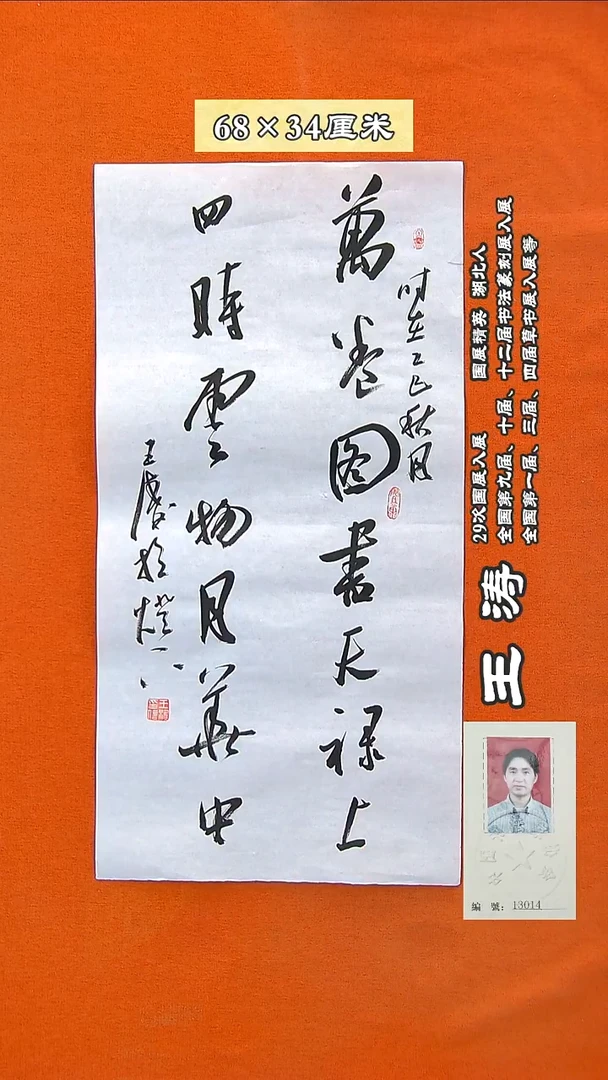 68×34厘米
萬卷圖書天禄上
時在乙巳秋月
四時雲物月華中
王濤於燈下
王涛
29次国展入展 国展精英 湖北人
全国第九届、十届、十二届书法篆刻展入展
全国第一届、三届、四届草书展入展等
編 號: 13014